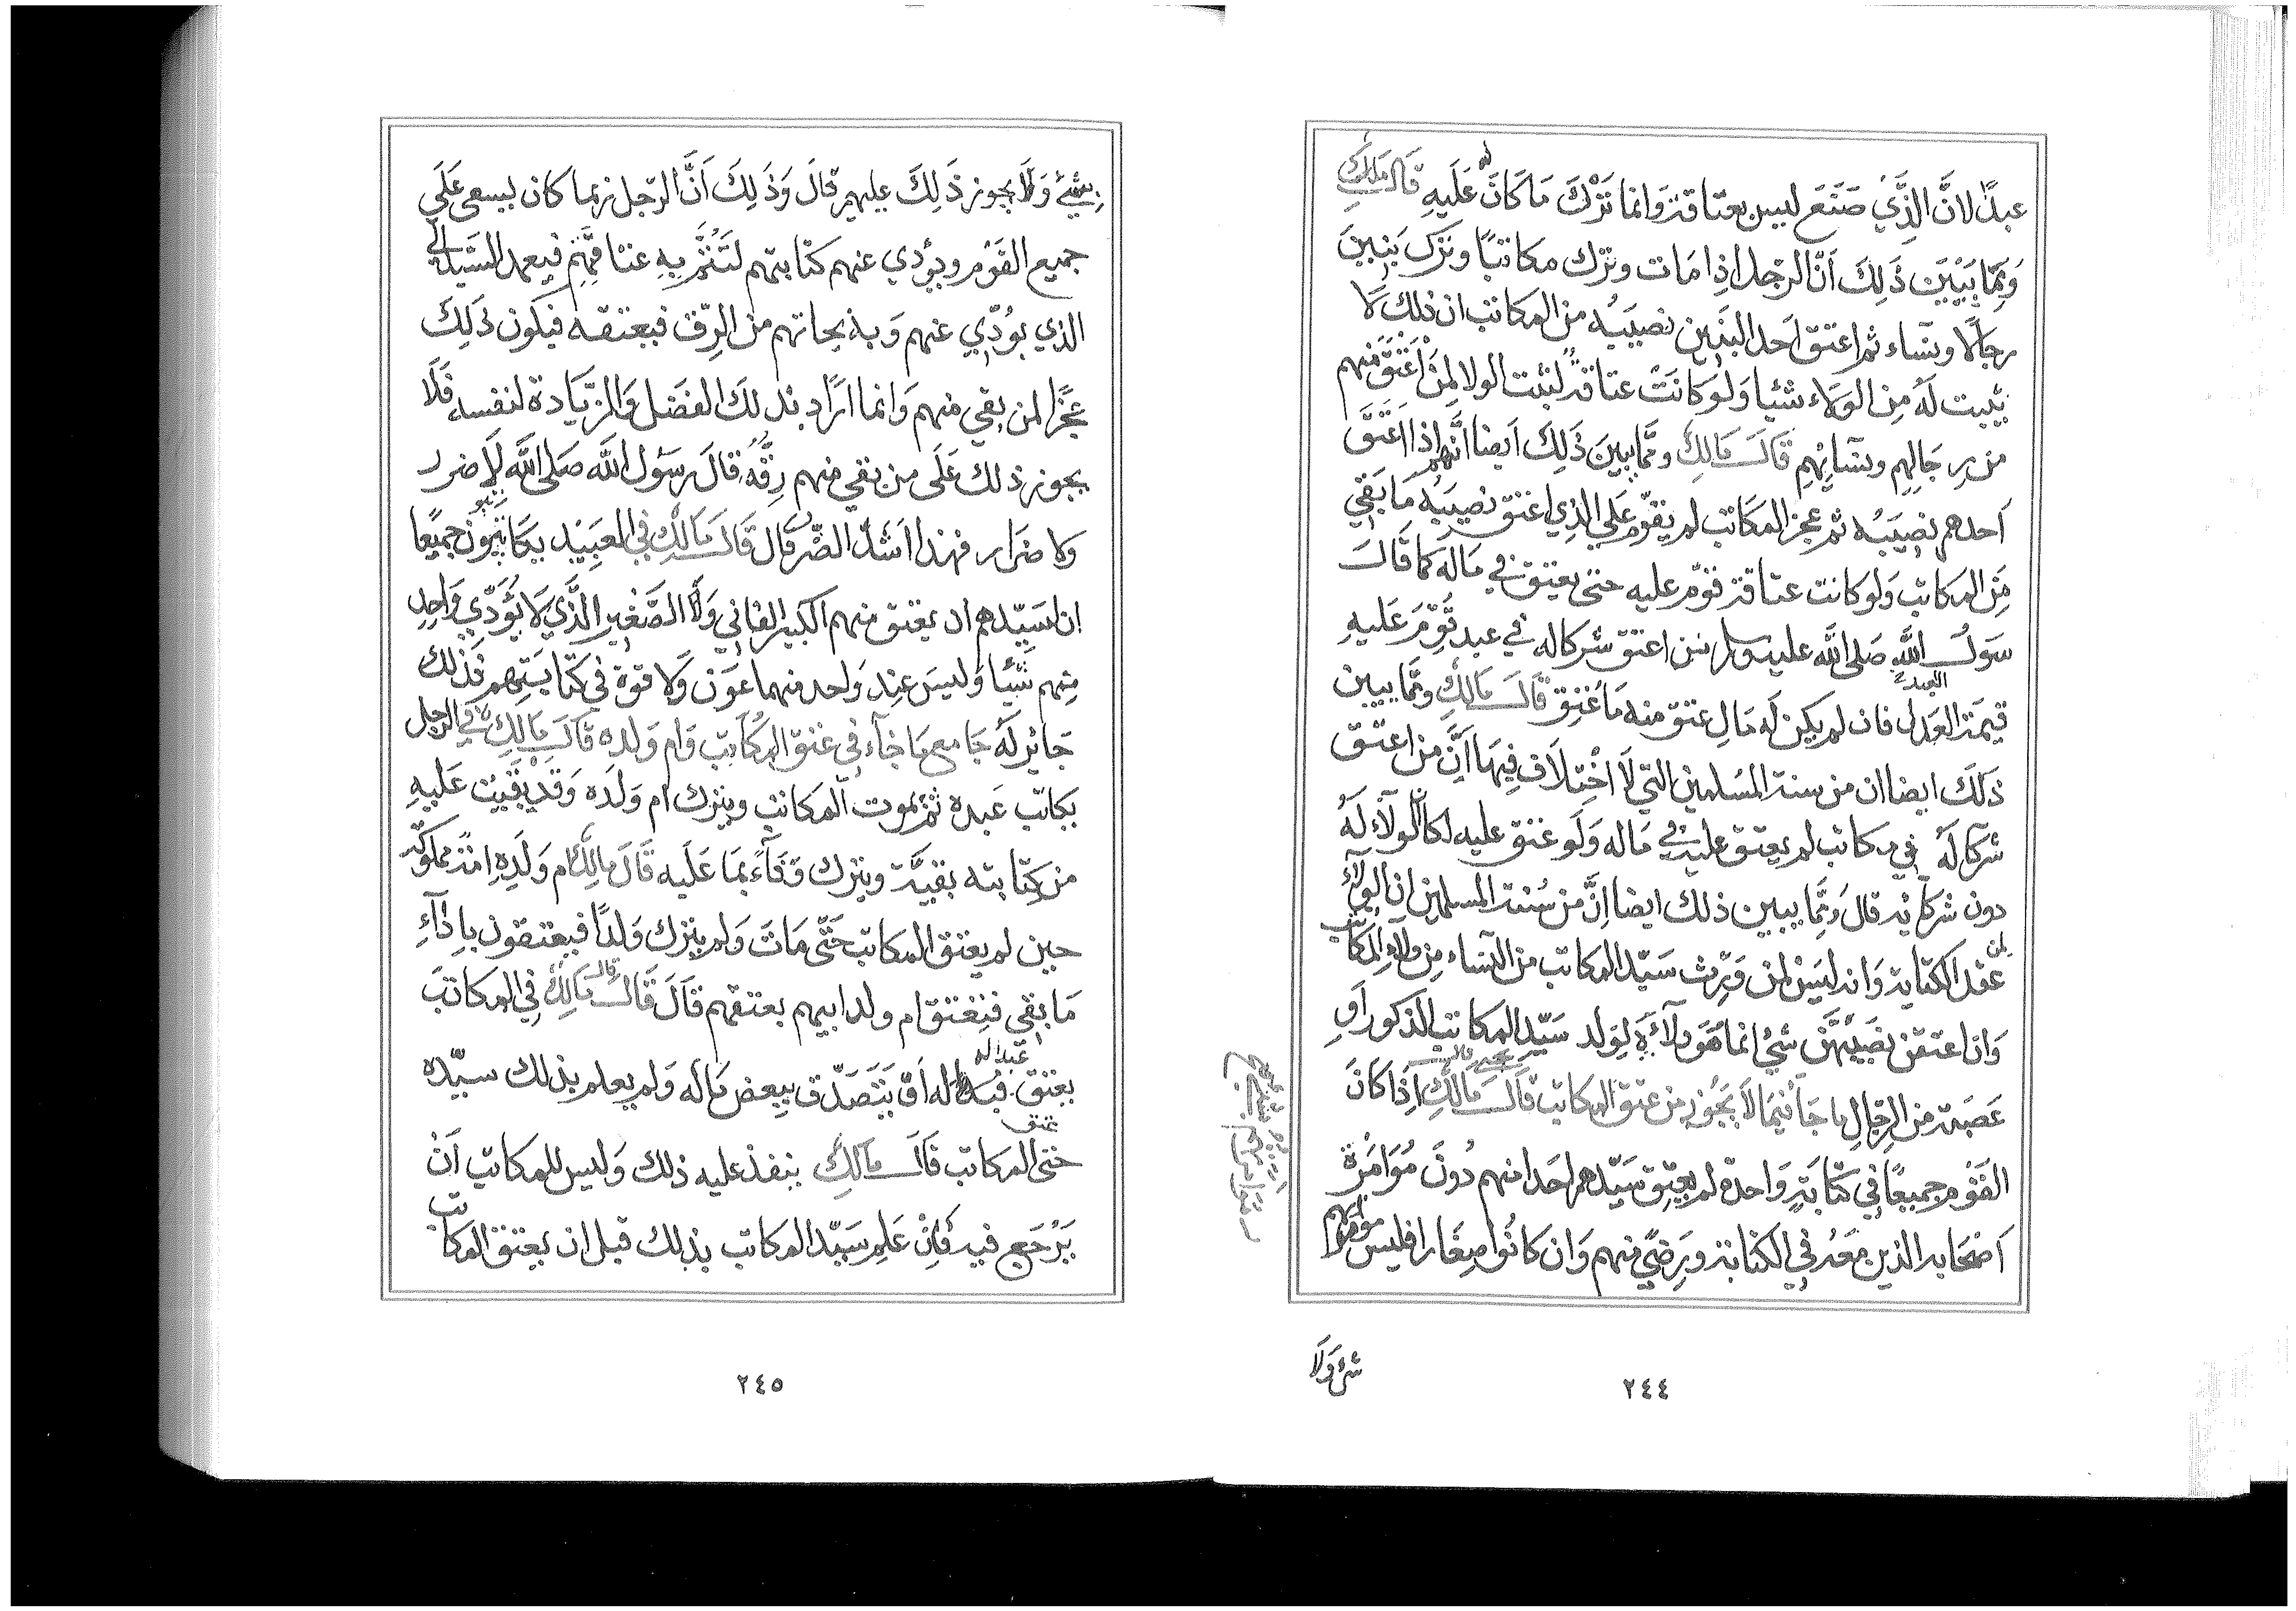 عبدًا لانَّ الذَّي صَنَعَ ليس بعتاقة وَانما تَرْكَ مَا كَانَ له عَلَيهِ قَالَ مَالِك
وَمِمَّا يَبُيَينَ ذَلِكَ اَنّ الرّجل اذِا مَات وترك مكاتبًا وترَك بَنِينَ
رجالًا ونسَاء ثم اعتق احَد البنَين نصيبَهُ من المكاتب ان ذلك لَا
يثبت لَهُ مِنَ الوَلاء شئيا وَلوَ كانَتْ عتَاقةً لثبت الولا لمِنْ اَعْتَقَ مِنهم
من رِجَالِهِم ونسَائِهُم قَالَ مَالِكُ ومّمَا يبينَ ذَلِكَ اَيضا انَّهم اِذا اَعَتَقَ
اَحدهم نصِيبَهُ ثم عجز المكَاتب لم يقوّم عَلَى الذِي اعتق نصِيبَهُ مَا بَقي
مِنَ المكَاتِب وَلو كانت عتاقة قوّم عليه حتى يعتق في مَاله كما قَالَ
سَوَلُ اللَّهِ صَلى اللَّه عليه وسلم من اعتق شركا له في عبد قُوِّمَ عَليهِ
قيمَة العَدل العبد فان لم يكن لَه مَال عتق منه مَا عُتِقَ قَالَ مَالِكُ ومّمَا يبين
ذَلَكَ ايضا ان من سنة المُسلمين التي لاَ اخْتِلَافَ فيهَا اَنَّ من اعتَق
شركا لَهُ في مكاتب لم يعتق عليه في مَاله وَلَو عتق عليه لكان الوَلَآء لَهُ
دون شركائه قال ومَّمَا يبين ذلك ايضا اِنَّ من سُنة المسلمين ان الوَلآءَ
لمن عقد الكتَابة وَانه ليَسَ لمن وَرِثَ سَيّد المكاتب من النسَاء مِن ولاءِ المكَاتب
وَان اعتقن نصَيبَهُنَّ شئُ انما هُوَ ولَآءُهُ لِوَلد سَيّدِ المكاتب الذكور اَو
عَصَبَة من الرّجَالِ ما جَا فيمَا لاَ يجُوز من عتق المكاتب قَالَ مَالِكُ اِذَا كانَ
القَوْم جميعًا فِي كتَابَةٍ وَاحدة لم يعتِق سَيّدهم احَدا منهم دُونَ مُوَامَرة
اَصْحَابه الذين مَعَهُ في الكتابة وَرِضَيً منهم وَان كانُوا صِغَارا فليس موامرَتهم
شئ وَلَا
٢٤٤
بِشَيْءٍ وَلَا يجوز ذَلِكَ عليهم قالَ وَذَلِكَ اَنَّ الرّجل ربما كان ليسعى عَلَى
جميع القَوْم ويؤدي عنهم كتَابتهم لتَتُمَّ بِهِ عتَاقتُهُم فيعمد السّيدُ الى
الذي يوُدّي عنهم وَبه نجاتهم من الرِّق فيعتقه فيكون ذَلِكَ
عجَزًا لمن بقي منهم وَانما ارَاد بذلكَ الفضل وَالزّيَادة لنفسه فَلَا
يجوز ذلك عَلَى من بقي منهم رِقَّهُ قالَ رسَوُل اللَّه صَلى اللَّه لَا ضرر
وَلا ضرَار فهذا اَشَدُّ الضّرر قال قَالَ مَالِكُ في العبَيْد يكَاتبُون جميًعا
اِن لسَيّدهم ان يعتق منهم الكبير الفاني وَلَا الصَّغِير الَّذِي لَا يُؤَدّي وَاحِد
مِنهم شَيئًا وَليسَ عِند وَاحد منهما عوَن وَلَا قوة في كتَابتهم فَذلك
جَايز لَهُ جَامع مَا جَآء في عتق المكَاتب وَام وَلدِه قَالَ مَالِكُ في الرّجل
يكاتب عَبده ثمّ يموت المكاتب ويترك اُم وَلدَه وَقَد بقَيَت عَليهِ
من كتابته بقيَّة ويترك وَفَآءً بمَا عَلَيه قَالَ مَالِكُ ام وَلَدِهِ امَةٌ مملوكة
حين لم يعتق المكاتب حَتّى مَاتَ وَلم يترك وَلدًا فيعتقون بِادَآءِ
مَا بقي فتعتق ام ولد ابيهم بعتقهم قَالَ قَالَ مَالِكُ في المكاتَب
يعتق عبدا له اَوَ يَتَصَدّق ببعض مَاله وَلم يعلم بذلك سيّده
حتى عتق المكاتب قَالَ مَالِكُ ينفذ عليه ذلك وَليس للمكاتب اَنْ
يَرْجَع فيه فَاِنْ عَلِم سَيّد المكاتب بذلك قبل ان يعتق المكاتب
٢٤٥